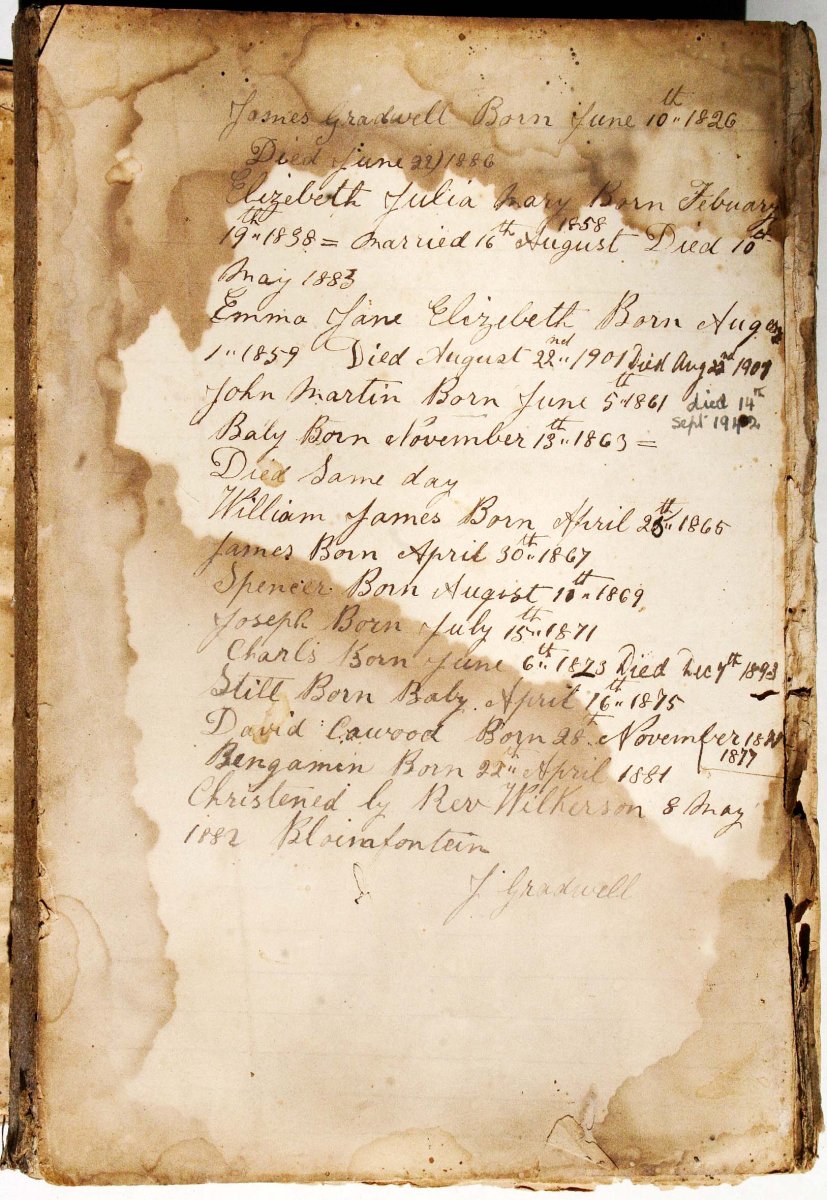 James Gradwell Born June 10th" 1826
Died June 22) 1886
Elizebeth Julia Mary Born Febuary
19th" 1838 = Married 16th August 1858 Died 10th
May 1883
Emma Jane Elizebeth Born August
1" 1859 Died August 22nd" 1901 Died Aug 22nd 1901
John Martin Born June 5th" 1861 died 14th
Sept 1942
Baby Born November 13th" 1863 =
Died Same day
William James Born April 25th" 1865
James Born April 30th" 1867
Spencer Born August 10th" 1869
Joseph Born July 15th" 1871
Charls Born June 6th" 1873 Died Dec 7th 1893
Still Born Baby April 16th" 1875
David Cawood Born 28th November
1877
Bengamin Born 22nd" April 1881
Christened by Rev Wilkerson 8 May
1882 Bloimfontein
J Gradwell